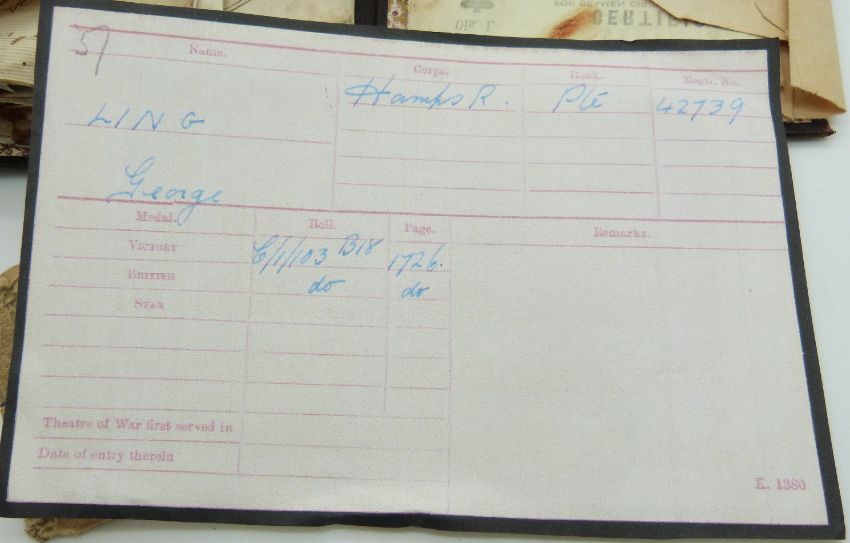 57
Name.
Corps.
Rank.
Regtl. No.
Hamps R.
Pte
42739
LING
George
Medal.
Roll.
Page.
Remarks.
VICTORY
C/1/103 B18
1726.
BRITISH
do
do
STAR
Theatre of War first served in
Date of entry therein
K. 1380